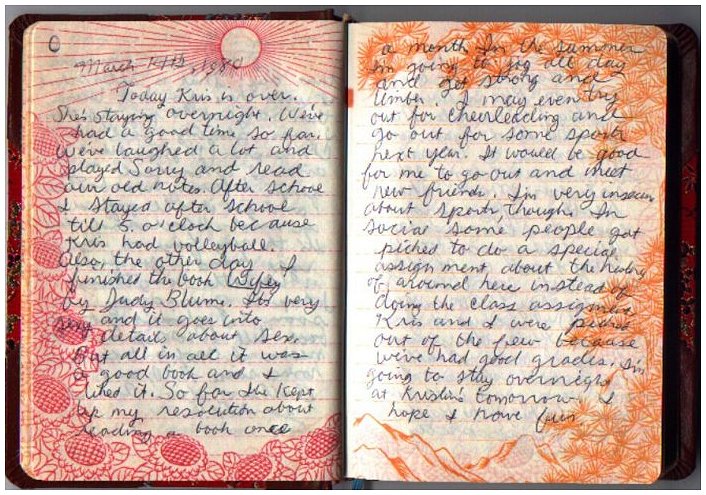 March 14th, 1980
Today Kris is over.
She's staying overnight. We've
had a good time so far.
We've laughed a lot and
played Sorry and read
our old notes. After school
I stayed after school
till 5 o'clock because
Kris had volleyball.
Also, the other day I
finished the book Wifey
by Judy Blume. It's very
sexy and it goes into
detail about sex.
But all in all it was
a good book and I
liked it. So far I've kept
up my resolution about
reading a book once
a month. In the summer
I'm going to jog all day
and get strong and
limber. I may even try
out for cheerleading and
go out for some sports
next year. It would be good
for me to go out and meet
new friends. I'm very insecure
about sports, though. In
social some people got
picked to do a special
assignment about the history
of around here instead of
doing the class assignment
Kris and I were picked
out of the few because
we've had good grades. I'm
going to stay overnight
at Kristin's tomorrow. I
hope I have fun.